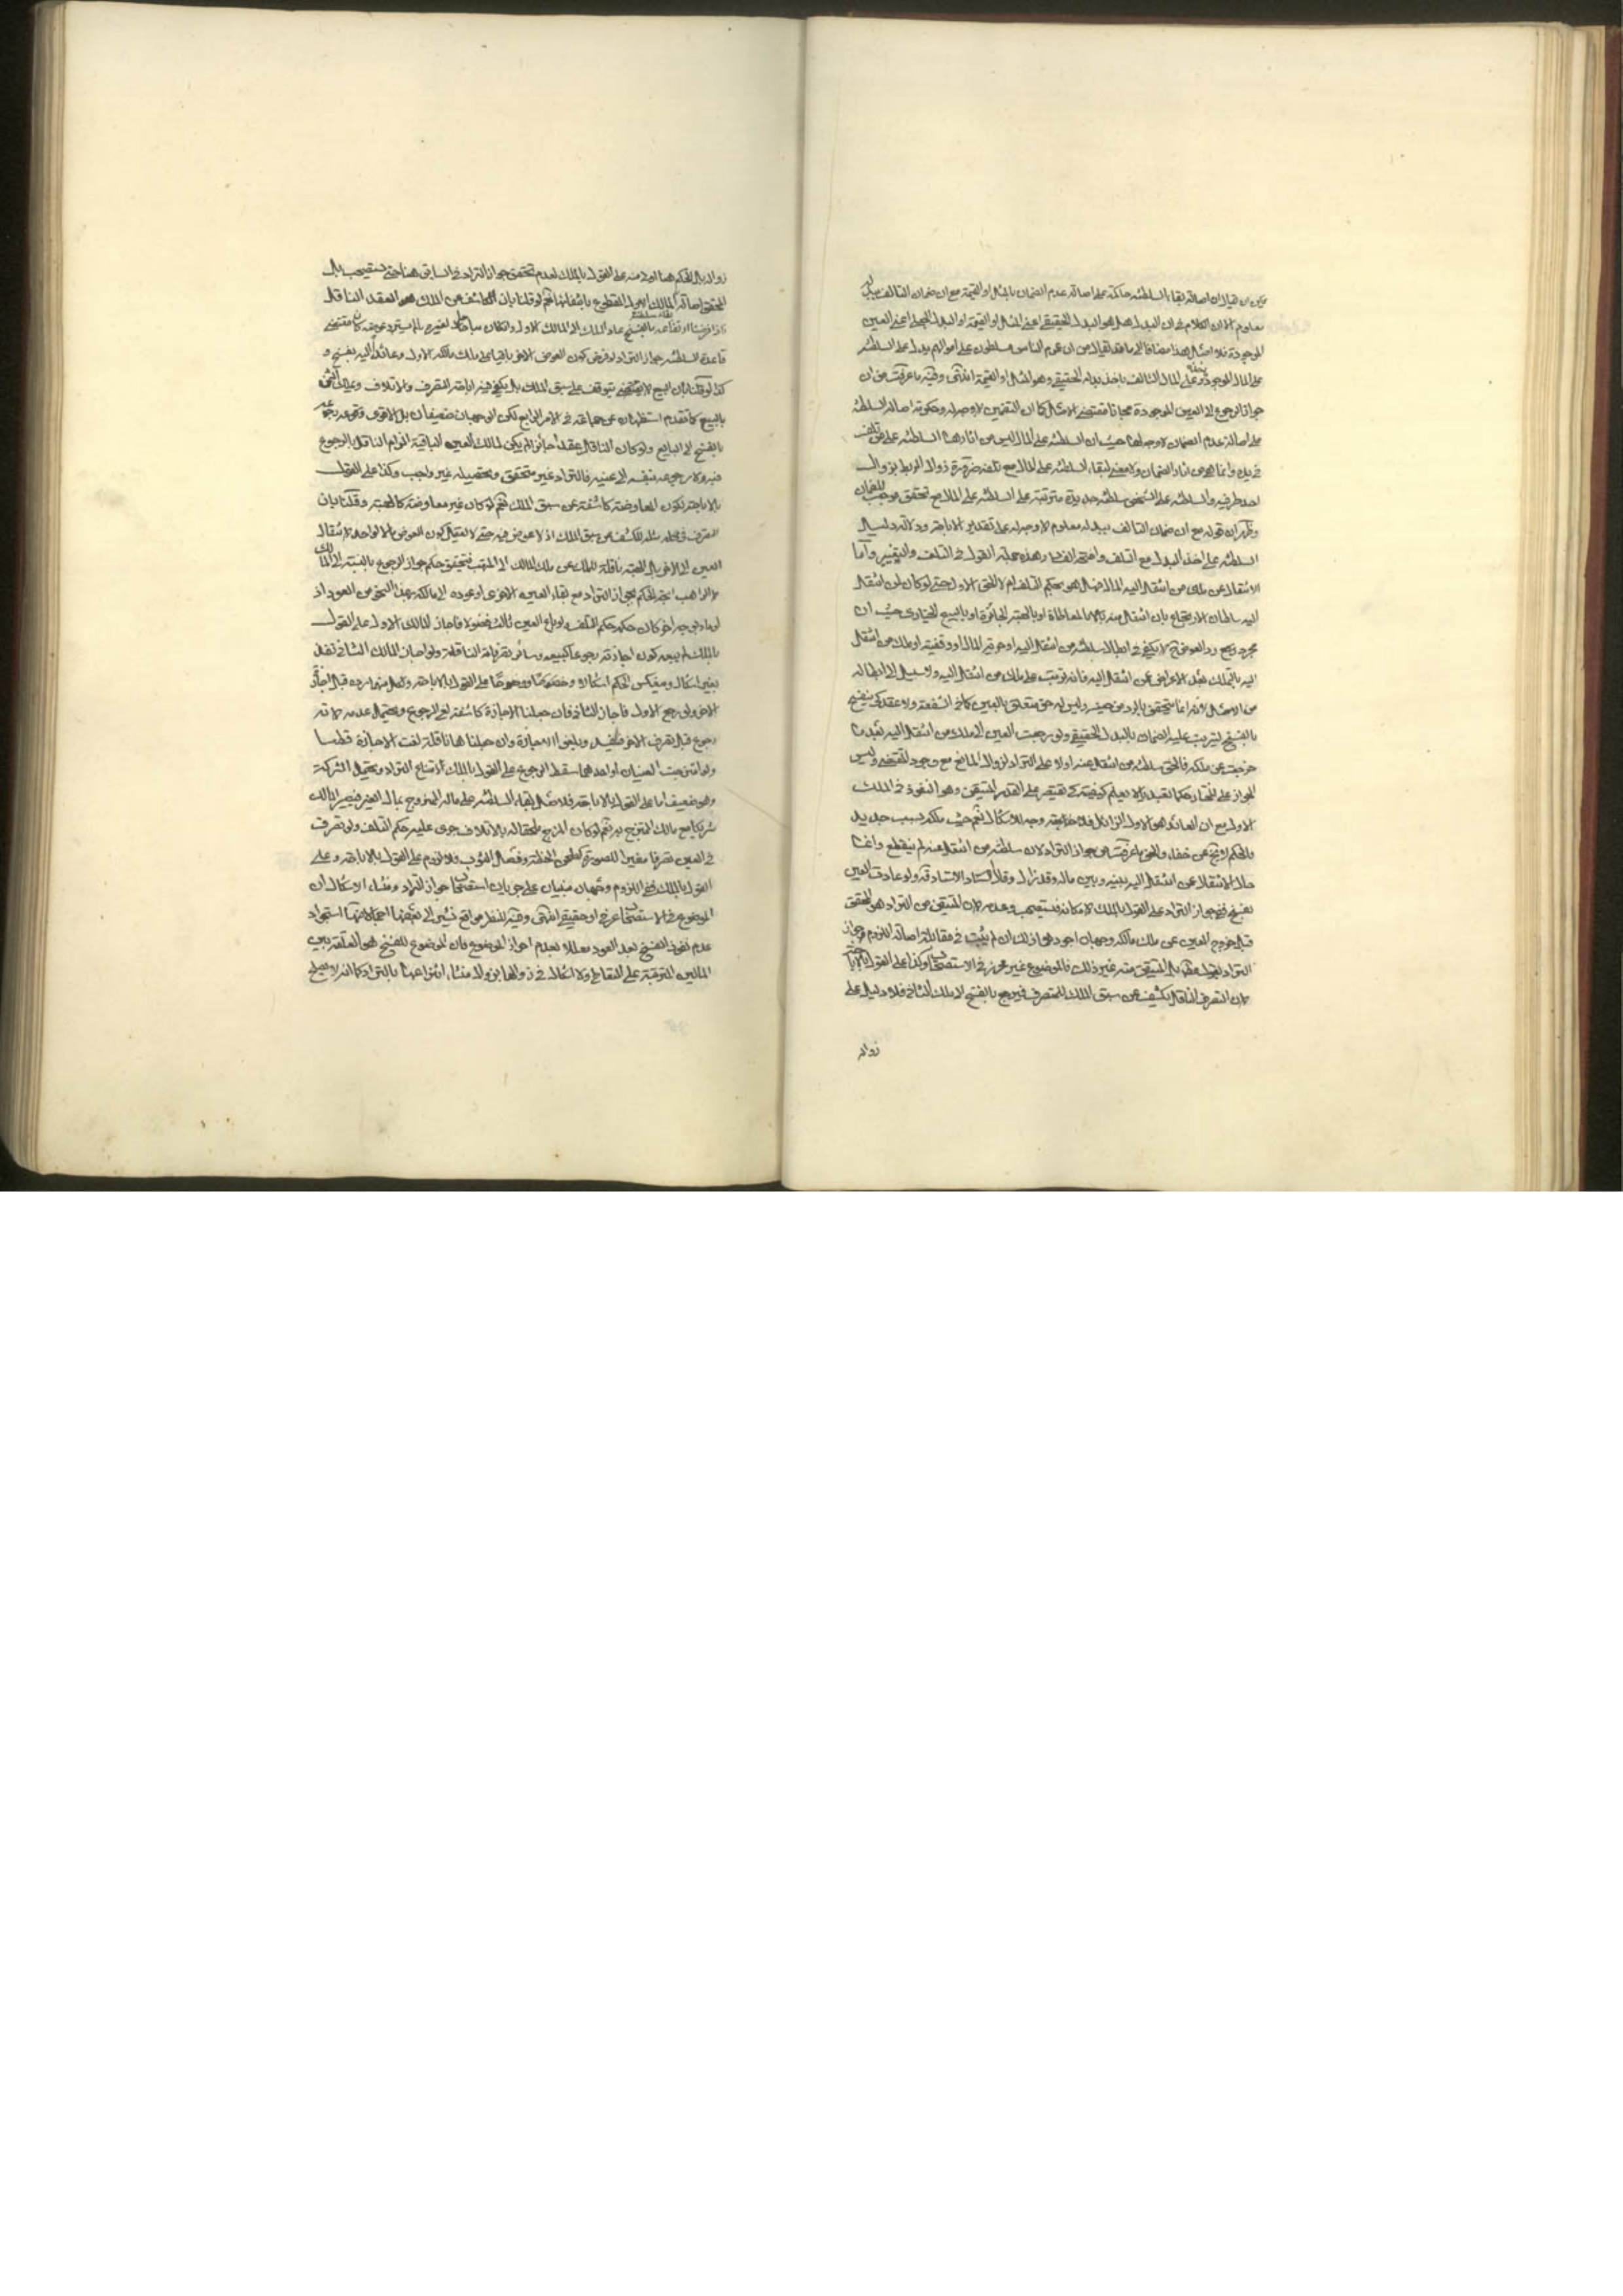 يمكن ان يقال ان اصالة بقاء السلطنة حاكمة على اصالة عدم الضمان بالمثل او القيمة مع ان ضمان التالف ببدله
معلوم الا ان الكلام في ان البدل هل هو البدل الحقيقي اعني المثل او القيمة او البدل الجعلي اعني العين
الموجودة فلا اصل هذا مضافا الى ما قد يقال من ان عموم الناس مسلطون على اموالهم يدل على السلطنة
على المال الموجود باخذه وعلى المال التالف باخذ بدله الحقيقي وهو المثل او القيمة انتهى وفيه ما عرفت من ان
جواز الرجوع الى العين الموجودة مجانا مقتضى الاصل كما ان التضمين لا وجه له وحكومة اصالة السلطنة
على اصالة عدم الضمان لا وجه لها حيث ان السلطنة على المال ليس من اثارها السلطنة على من تلف
في يده وانما هو من اثار الضمان ولا معنى لبقاء السلطنة على المال مع تلفه ضرورة زوال الربط بزوال
احد طرفيه والسلطنة على الشخص سلطنة جديدة مترتبة على السلطنة على المال مع تحقق موجب الضمان
وظهر ان قوله مع ان ضمان التالف ببدله معلوم لا وجه له على تقدير الاباحة ودلالة دليل
السلطنة على اخذ البدل مع التلف واضحة الفساد وهذه جملة القول في التلف والتغيير واما
الانتقال عن ملك من انتقل اليه المال فهل هو بحكم التلف ام لا الحق الاول حتى لو كان لمن انتقل
اليه سلطان الارتجاع بان انتقل منه بالمعاطاة او بالهبة الجائزة او بالبيع الخياري حيث ان
مجرد رد العوض لا يكفي في ابطال سلطنة من انتقل اليه او حرية المال او وقفيته او ملك من انتقل
اليه بالتملك عند الاعراض عن انتقل اليه فانه ترتبت على ملك من انتقل اليه ولا سبيل الى ابطاله
من الاصل لانه انما يتحقق بالرد من حينه وليس له حق متعلق بالعين كما في الشفعة ولا عقد كي ينفسخ
بالفسخ ليترتب عليه الضمان بالبدل الحقيقي ولو رجعت العين الى ملك من انتقل اليه بعد ما
خرجت عن ملكه فالحق سلطنة من انتقل عنه اولا على التراد لزوال المانع مع وجود المقتضي وليس
الجواز على المختار حكما تعبديا لا يعلم كيفيته كي يقتصر على القدر المتيقن وهو النفوذ في الملك
الاول مع ان العائد هو الاول الزائل فلا وجه للاشكال نعم حيث ملكه بسبب جديد
فالحكم لا يخ عن خفاء والحق ما عرفت من جواز التراد لان سلطنة من انتقل عنه لم ينقطع وانما
حال الانتقال عن انتقل اليه بينه وبين ماله وقد زال وقال الاستاد الاستاد قده ولو عادت العين
بفسخ ففي جواز التراد على القول بالملك لامكانه فيستصحب وعدمه لان المتيقن من التراد هو المحقق
قبل خروج العين عن ملك مالكه وجهان اجودهما ذلك ان لم يثبت في مقابلة اصالة اللزوم جواز
التراد بقول مطلق بل المتيقن منه غير ذلك فالموضوع غير محرز في الاستصحاب وكذا على القول بالاباحة
لان التصرف الناقل يكشف عن سبق الملك للمتصرف فيرجع بالفسخ الى ملك الثاني فلا دليل على
زواله
زواله بل الحكم هنا اولى منه على القول بالملك لعدم تحقق جواز التراد في السابق هنا حتى يستصحب بل
المحقق اصالة بقاء سلطنة المالك الاول المقطوع بانتفائها نعم لو قلنا بان الكاشف عن الملك هو العقد الناقل
فاذا فرضنا ارتفاعه بالفسخ عاد الملك الى المالك الاول وان كان مباحا لغيره ما لم يسترد عوضه كان مقتضى
قاعدة السلطنة جواز التراد لو فرض كون العوض الاخر باقيا على ملك مالكه الاول او عائدا اليه بفسخ و
كذا لو قلنا بان البيع لا يتوقف على سبق الملك بل يكفي فيه اباحة التصرف والاتلاف ويملك الثمن
بالبيع كما تقدم استظهاره عن جماعة في الامر الرابع لكن الوجهان ضعيفان بل الاقوى رجوعه
بالفسخ الى البايع ولو كان الناقل عقدا جائزا لم يكن لمالك العين الباقية الزام الناقل بالرجوع
فيه ولا رجوعه بنفسه الى عينه فالتراد غير متحقق وتحصيله غير واجب وكذا على القول
بالاباحة لكون المعاوضة كاشفة عن سبق الملك نعم لو كان غير معاوضة كالهبة وقلنا بان
التصرف في مثله لا يكشف عن سبق الملك اذ لا عوض فيه حتى لا يعقل كون العوض مالا لواحد وانتقال
العين الى الاخر بل الهبة ناقلة للملك عن ملك المالك الى المتهب فيتحقق حكم جواز الرجوع بالنسبة الى المالك
لا الواهب اتجه الحكم بجواز التراد مع بقاء العين الاخرى او عوده الى مالكه بهذا النحو من العود اذ
لو عاد بوجه اخر كان حكمه حكم التلف ولو باع العين ثالث فضولا فاجاز المالك الاول على القول
بالملك لم يبعد كون اجازته رجوعا كبيعه وسائر تصرفاته الناقلة ولو اجاز المالك الثاني نفذ
بغير اشكال وينعكس الحكم اشكالا ووضوحا على القول بالاباحة ولكل منهما رده قبل اجازة
الاخر ولو رجع الاول فاجاز الثاني فان جعلنا الاجازة كاشفة لغى الرجوع ويحتمل عدمه لانه
رجوع قبل تصرف الاخر فينفذ ويلغو الاجازة وان جعلناها ناقلة لغت الاجازة قطعا
ولو امتزجت العينان او احدهما سقط الرجوع على القول بالملك لامتناع التراد ويحتمل الشركة
وهو ضعيف اما على القول بالاباحة فالاصل بقاء السلطنة على ماله الممزوج بمال الغير فيصير المالك
شريكا مع مالك الممتزج به نعم لو كان المزج ملحقا له بالاتلاف جرى عليه حكم التلف ولو تصرف
في العين تصرفا مغيرا للصورة كطحن الحنطة وفصل الثوب فلا لزوم على القول بالاباحة وعلى
القول بالملك ففي اللزوم وجهان مبنيان على جريان استصحاب جواز التراد ومنشاء الاشكال ان
الموضوع في الاستصحاب عرفي او حقيقي انتهى وفيه للنظر مواقع نشير الى بعضها اجمالا منها استجواد
عدم نفوذ الفسخ بعد العود معللا بعدم احراز الموضوع فان الموضوع للفسخ هو العلقة بين
المالين المترتبة على التقابض ولا اشكال في زوالها بزوال منشاء انتزاعها بالتراد كما انه لا يصلح